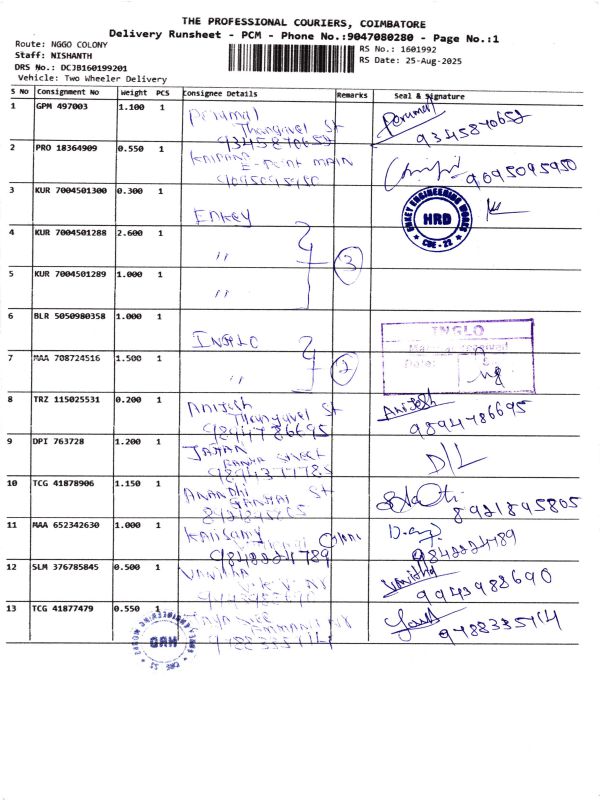 THE PROFESSIONAL COURIERS, COIMBATORE
Delivery Runsheet - PCM - Phone No.:9047080280 - Page No.:1
Route: NGGO COLONY
Staff: NISHANTH
DRS No.: DCJB160199201
Vehicle: Two Wheeler Delivery
RS No.: 1601992
RS Date: 25-Aug-2025
S No Consignment No Weight PCS Consignee Details Remarks Seal & Signature
1 GPM 497003 1.100 1 Perumal Perumal
Thangavel St
9345870652 9345870652
2 PRO 18364909 0.550 1
E-Point MAIN
9095095950 9095095950
3 KUR 7004501300 0.300 1 ENKEY
ENKEY ENGINEERING WORKS
HRD
CBE - 22
4 KUR 7004501288 2.600 1 "
3
5 KUR 7004501289 1.000 1 "
6 BLR 5050980358 1.000 1 INGLO
INGLO
Material Received
Date:
7 MAA 708724516 1.500 1 "
2
8 TRZ 115025531 0.200 1 Anijesh Anijesh
Thangavel St
9894786695 9894786695
9 DPI 763728 1.200 1 D/L
10 TCG 41878906 1.150 1 Anandhi St
8921845805
11 MAA 652342630 1.000 1 Kansamy
9842224789 9842224789
12 SLM 376785845 0.500 1 Vanitha Vanitha
9943988690
13 TCG 41877479 0.550 1
9788335714 9788335714
ENKEY ENGINEERING WORKS
HRD
CBE - 22